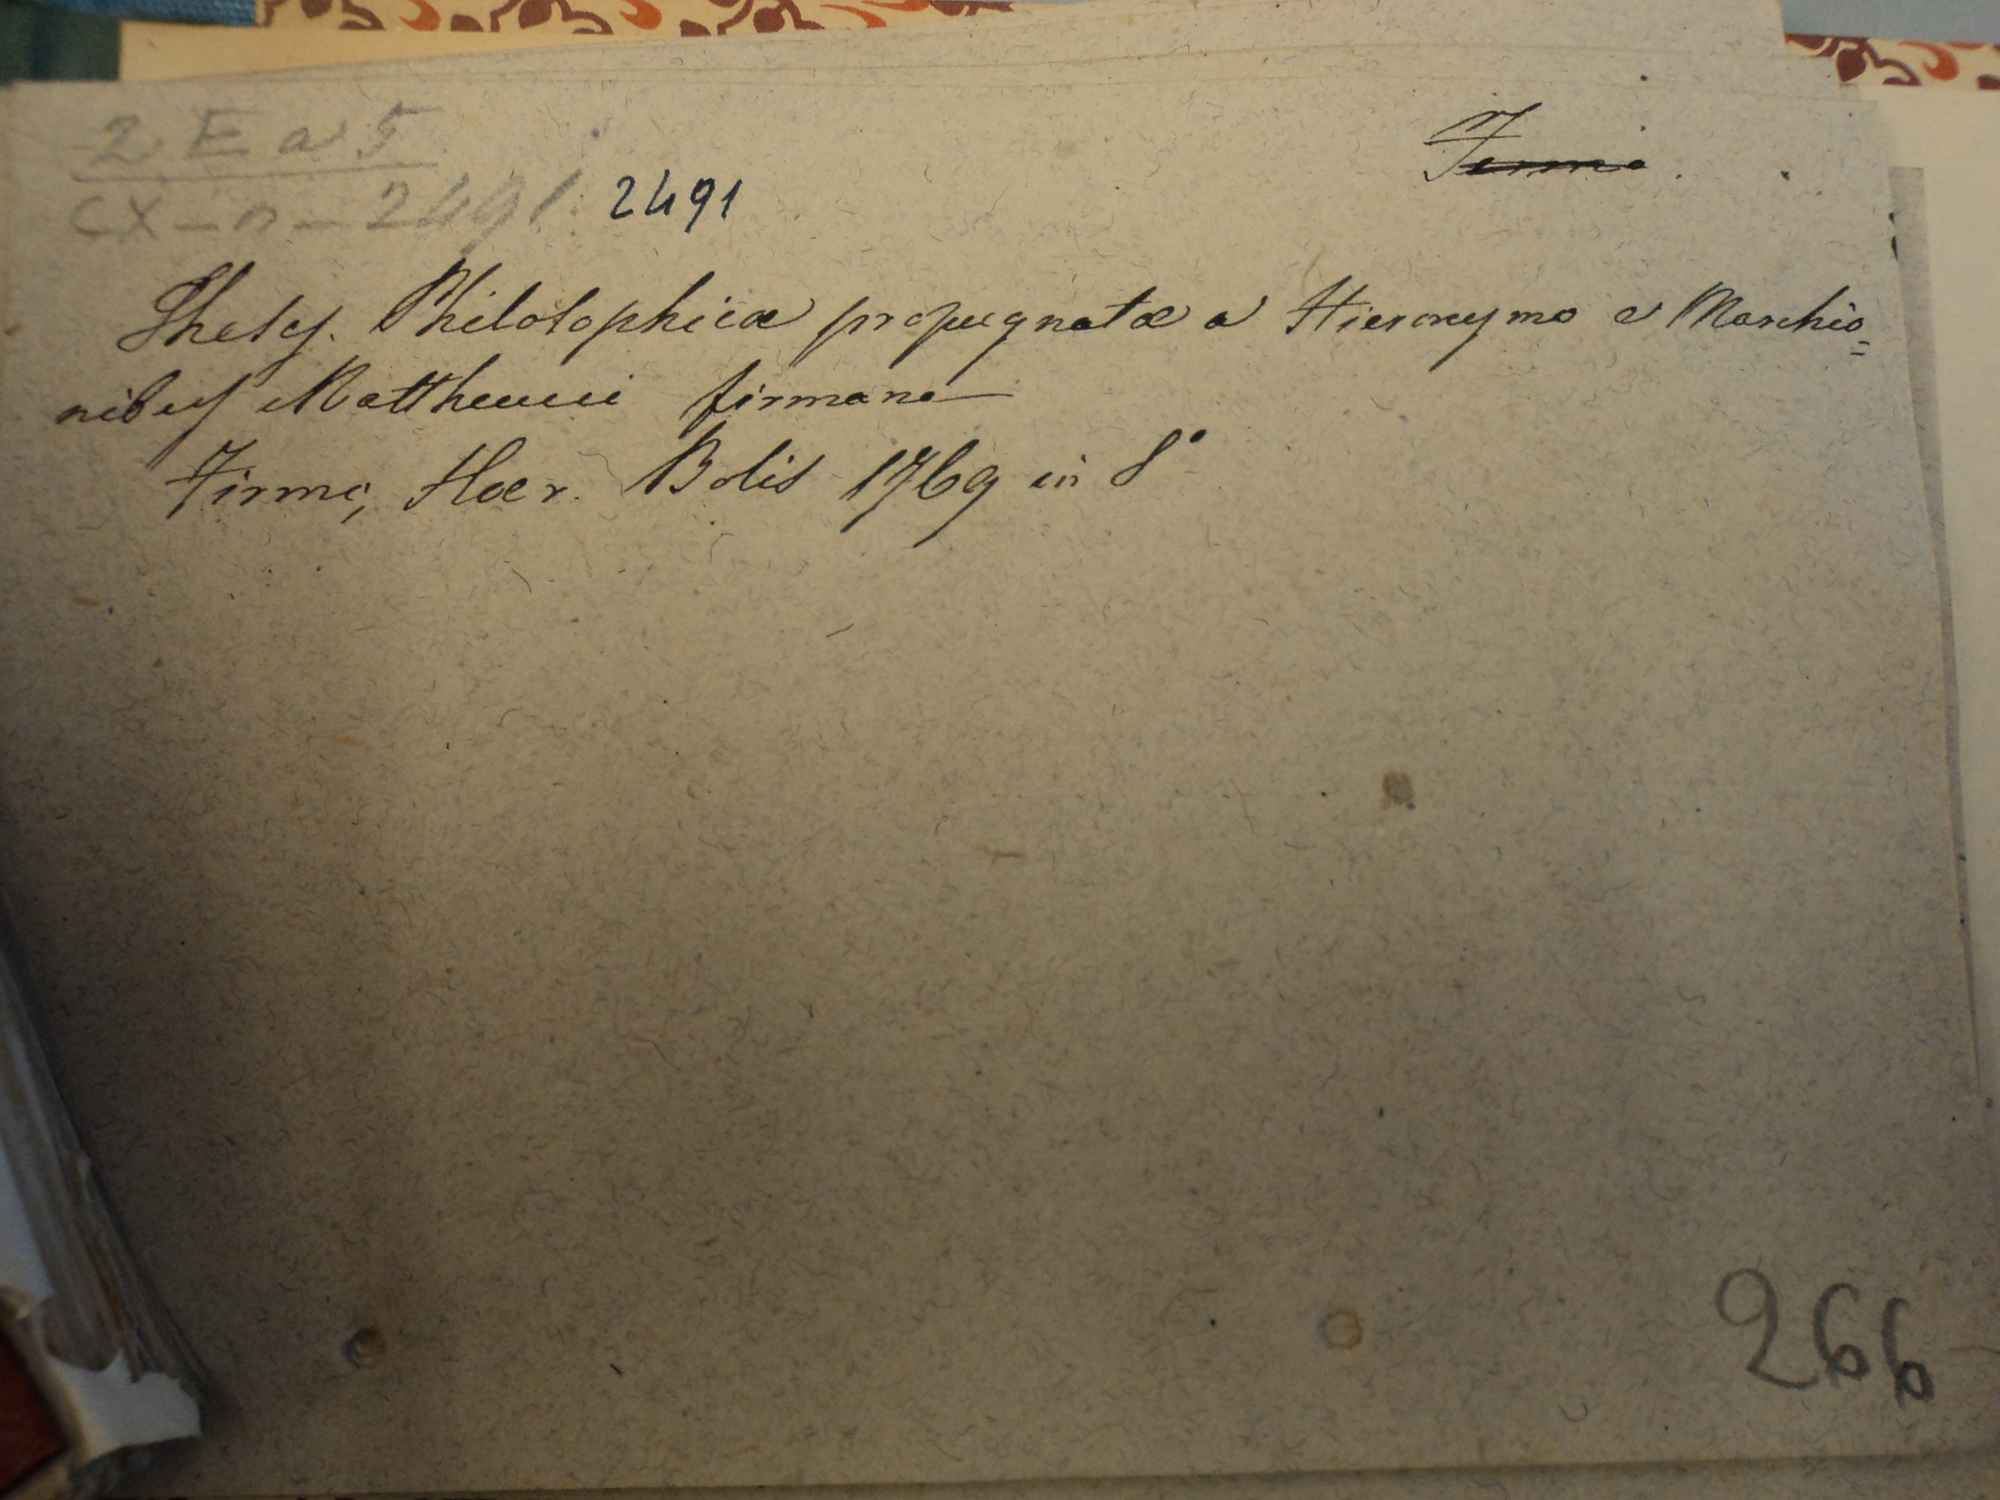 2 E a 5
CX-n-2491. 2491
Fermo.
Theses. Philosophicæ propugnatæ a Hieronymo e Marchio=
nibus Matthæucci firmano
Firmo, Hær. Bolis 1769 in 8°
266